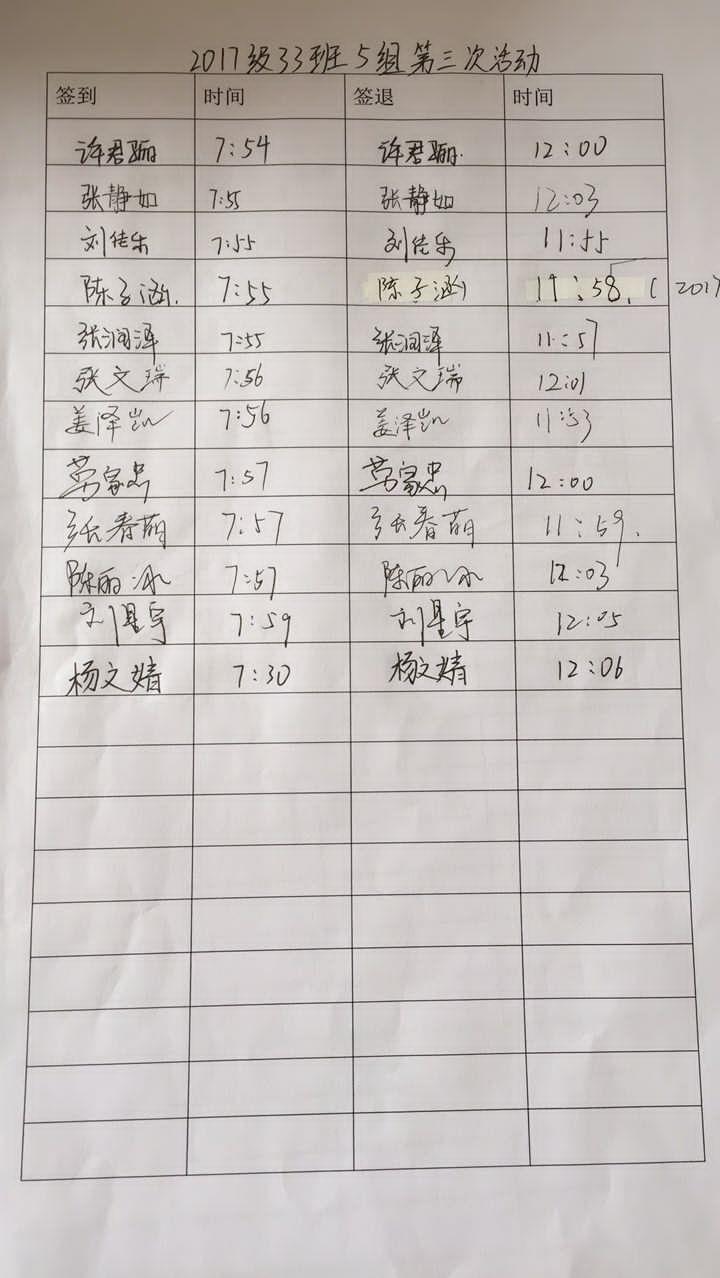 2017级33班5组第三次活动
签到 时间 签退 时间
许君骊 7:54 许君骊. 12:00
张静如 7:55 张静如 12:03
刘佳乐 7:55 刘佳乐 11:55
陈子涵. 7:55 陈子涵 11:58. ( 2017
张润泽 7:55 张润泽 11:57
张文瑞 7:56 张文瑞 12:01
姜泽凯 7:56 姜泽凯 11:53
家忠 7:57 家忠 12:00
张春萌 7:57 张春萌 11:59.
陈丽冰 7:57 陈丽冰 12:03
刘星宇 7:59 刘星宇 12:05
杨文婧 7:30 杨文婧 12:06